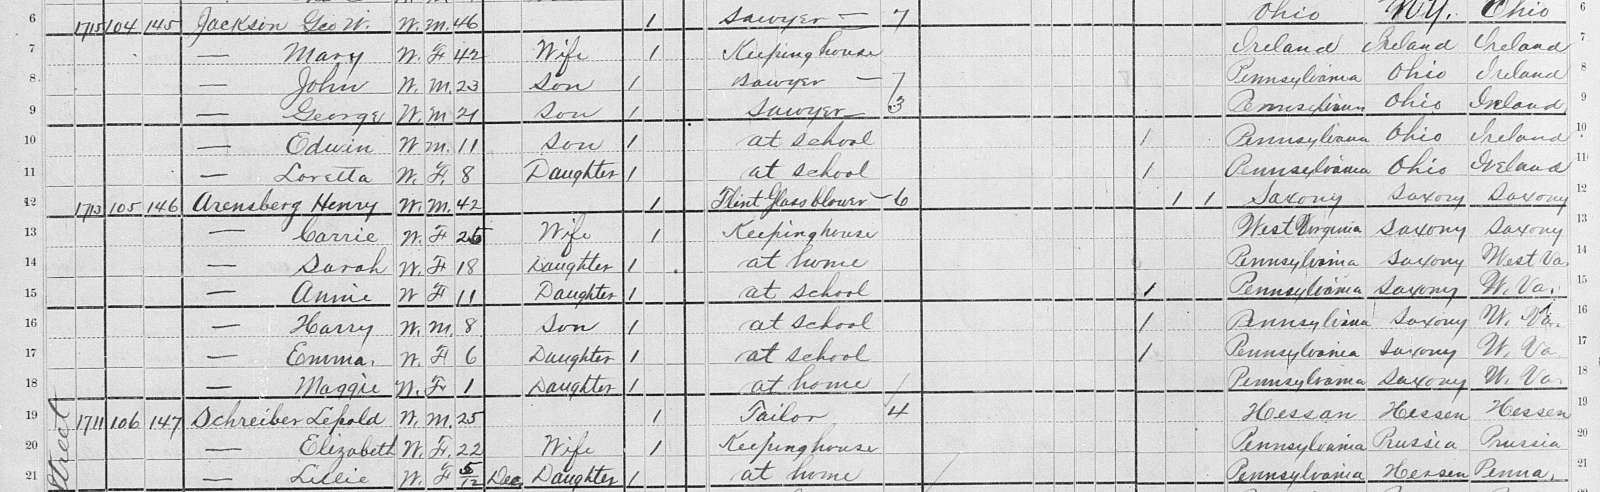 6 1715 104 145 Jackson Geo W. W. M. 46 1 Sawyer — 7 Ohio N.Y. Ohio 6
7 — Mary W. F. 42 Wife 1 Keeping house Ireland Ireland Ireland 7
8 — John W. M. 23 Son 1 Sawyer — 7 Pennsylvania Ohio Ireland 8
9 — George W. M. 21 Son 1 Sawyer 3 Pennsylvania Ohio Ireland 9
10 — Edwin W. M. 11 Son 1 at School 1 Pennsylvania Ohio Ireland 10
11 — Loretta W. F. 8 Daughter 1 at School 1 Pennsylvania Ohio Ireland 11
12 1713 105 146 Arensberg Henry W. M. 42 1 Flint Glass blower — 6 1 1 Saxony Saxony Saxony 12
13 — Carrie W. F. Wife 1 Keeping house West Virginia Saxony Saxony 13
14 — Sarah W. F. 18 Daughter 1 at home Pennsylvania Saxony West Va. 14
15 — Annie W F 11 Daughter 1 at School 1 Pennsylvania Saxony W. Va. 15
16 — Harry W. M. 8 Son 1 at School 1 Pennsylvania Saxony W. Va. 16
17 — Emma. W. F 6 Daughter 1 at School 1 Pennsylvania Saxony W. Va 17
18 — Maggie W. F. 1 Daughter 1 at home Pennsylvania Saxony W. Va. 18
19 1711 106 147 Schreiber Lepold W. M. 25 1 Tailor 4 Hessan Hessen Hessen 19
20 Elizabeth W. F. 22 Wife 1 Keeping house Pennsylvania Prussia Prussia 20
21 — Lillie W. F 5/12 Dec Daughter 1 at home Pennsylvania Hessen Penna. 21
Street